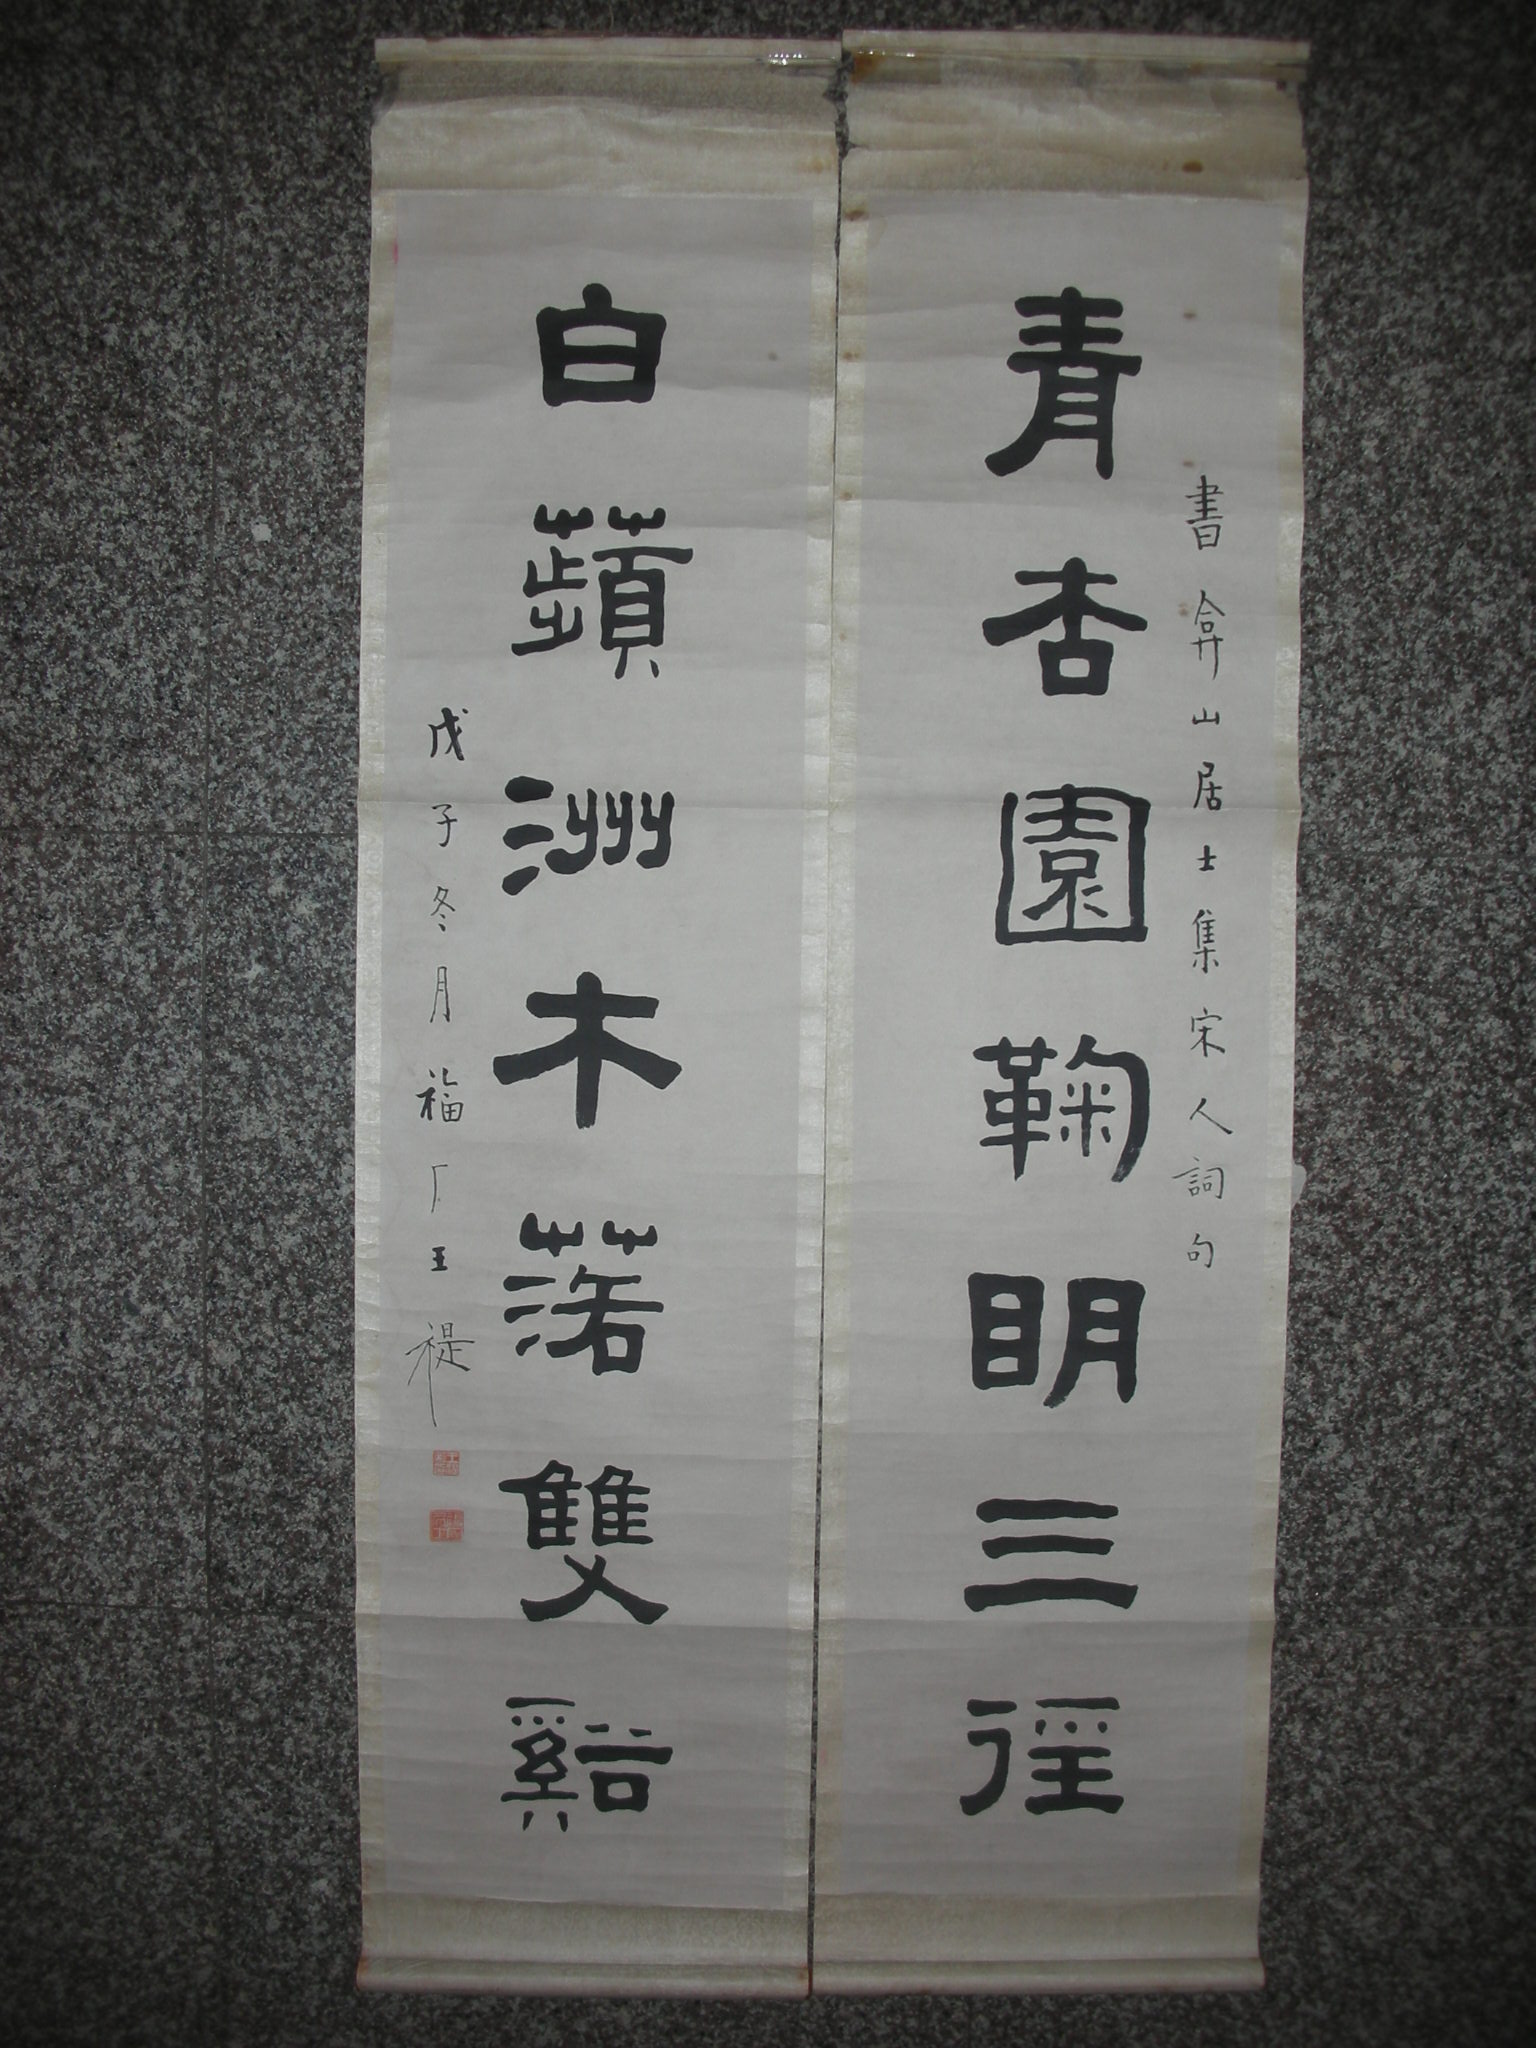 青杏園鞠明三徑
書弇山居士集宋人詞句
白蘋洲木落雙谿
戊子冬月福厂王禔